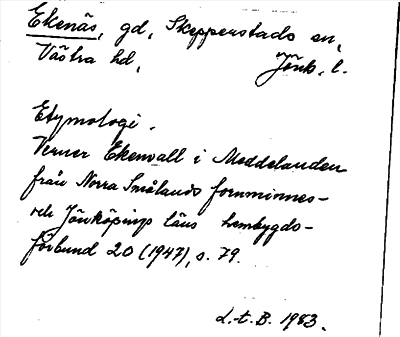 Ekenäs, gd, Skepperstads sn,
Västra hd, Jönk. l.
Etymologi.
Verner Ekenvall i Meddelanden
från Norra Smålands fornminnes-
och Jönköpings läns hembygds-
förbund 20 (1947), s. 79.
L.t.B. 1983.